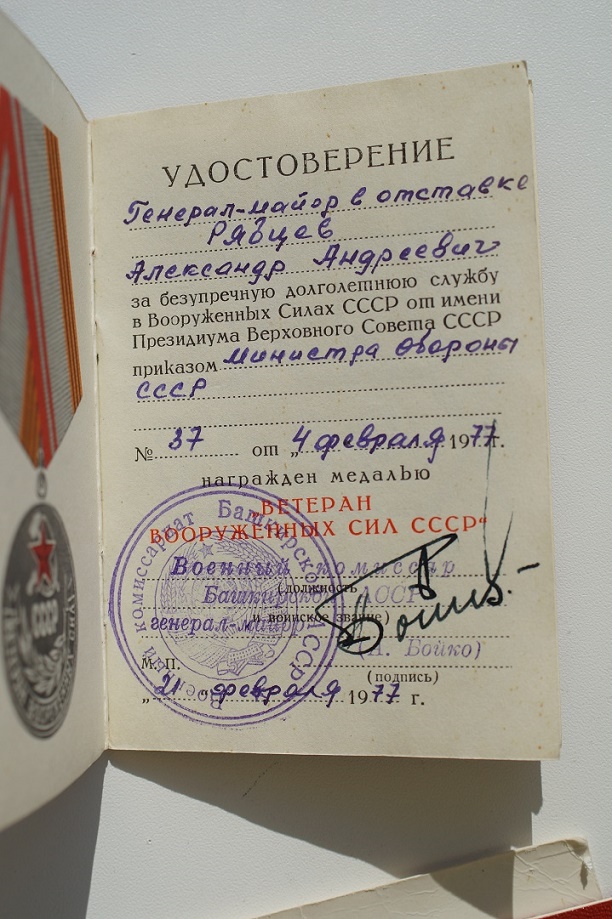 УДОСТОВЕРЕНИЕ
Генерал-майор в отставке
Рявцев
Александр Андреевич
за безупречную долголетнюю службу
в Вооруженных Силах СССР от имени
Президиума Верховного Совета СССР
приказом Министра Обороны
СССР
№ 37 от „4 февраля 1977г.
награжден медалью
„ВЕТЕРАН
ВООРУЖЕННЫХ СИЛ СССР“
Военный комиссар
(должность
Башкирской АССР
и воинское звание)
генерал-майор
Бойко)
М. П.
(подпись)
„21“ февраля 1977 г.
Военный комиссариат Башкирской АССР